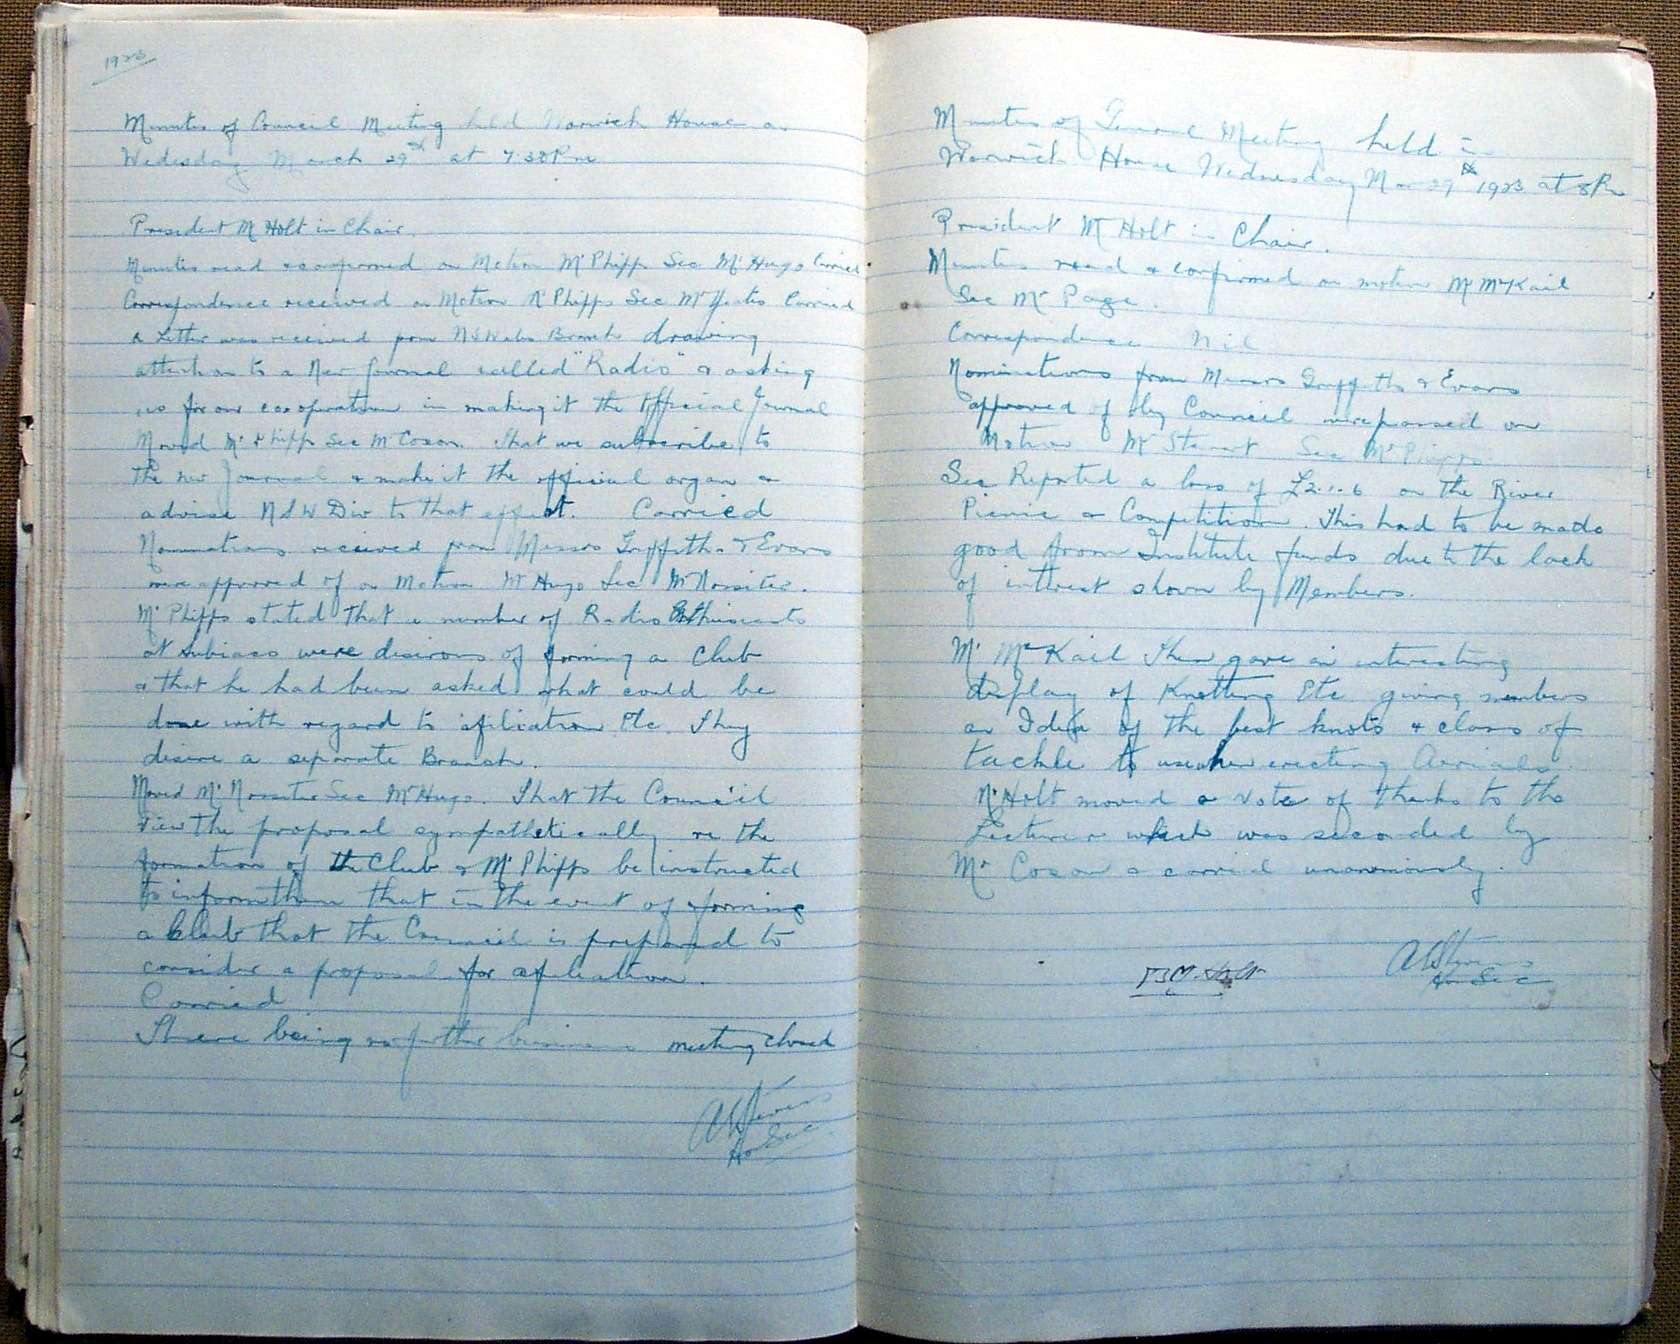 1923
Minutes of Council Meeting held Warwick House on
Wedesday March 29th at 7.30 Pm
President Mr Holt in Chair.
Minutes read & confirmed on Motion Mr Phipps Sec Mr Hugo Carried
Correspondence received on Motion Mr Phipps Sec Mr Yeates Carried
A Letter was received from N S Wales Branch drawing
attention to a New Journal called "Radio" & asking
us for our cooperation in making it the Official Journal
Moved Mr Phipps Sec Mr Coxon. That we subscribe to
the new Journal & make it the official organ &
advise N S W Div to that effect. Carried
Nominations received from Messrs Griffiths & Evans
were approved of on Motion Mr Hugo Sec Mr Rossiter.
Mr Phipps stated that a number of Radio Enthusiasts
at Subiaco were desirous of forming a Club
& that he had been asked what could be
done with regard to afiliation Etc. They
desire a separate Branch.
Moved Mr Rossiter Sec Mr Hugo. That the Council
view the proposal sympathetically re the
formation of the Club & Mr Phipps be instructed
to inform them that in the event of forming
a Club that the Council is prepared to
consider a proposal for afiliation.
Carried
There being no further business meeting closed
A E Stevens
Hon Sec
Minutes of General Meeting held in
Warwick House Wednesday Mar 29th 1923 at 8 Pm
President Mr Holt in Chair.
Minutes read & confirmed on motion Mr McKail
Sec Mr Page.
Correspondence Nil
Nominations from Messrs Griffiths & Evans
approved of by Council were passed on
Motion Mr Stewart Sec Mr Phipps
Sec Reported a loss of £2.1.6 on the River
Picnic & Competition. This had to be made
good from Institute funds due to the lack
of interest shown by Members.
Mr McKail then gave an interesting
display of Knotting Etc giving members
an Idea of the best knots & class of
tackle to use when erecting Aerials.
Mr Holt moved a vote of thanks to the
Lecturer which was seconded by
Mr Coxon & carried unanimously.
B M. Holt
A E Stevens
Hon Sec